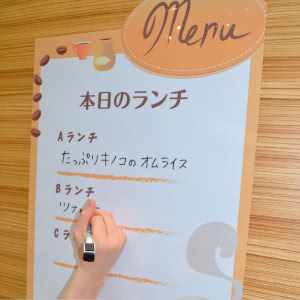 Menu
本日のランチ
Aランチ
たっぷりキノコのオムライス
Bランチ
ツナ
C